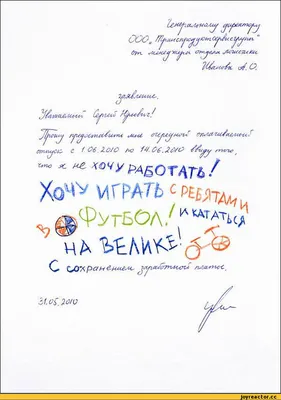 Генеральному директору
ООО „Транспродуктсервисгрупп"
от менеджера отдела логистики
Иванова А.О.
заявление.
Уважаемый Сергей Юрьевич!
Прошу предоставить мне очередной оплачиваемый
отпуск с 1.06.2010 по 14.06.2010 ввиду того,
что я не ХОЧУ РАБОТАТЬ!
ХОЧУ ИГРАТЬ С РЕБЯТАМИ
В ФУТБОЛ! И КАТАТЬСЯ
НА ВЕЛИКЕ!
С сохранением заработной платы.
31.05.2010
joyreactor.cc